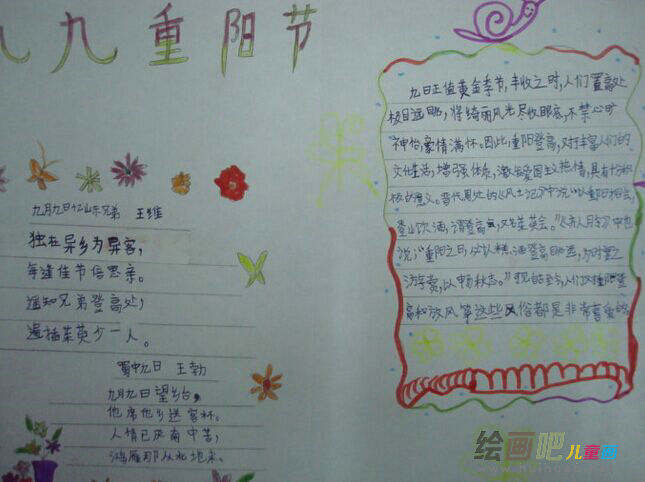 九九重阳节
九月九日忆山东兄弟 王维
独在异乡为异客,
每逢佳节倍思亲。
遥知兄弟登高处,
遍插茱萸少一人。
蜀中九日 王勃
九月九日望乡台,
他席他乡送客杯。
人情已厌南中苦,
鸿雁那从北地来。
九日正值黄金季节,丰收之时,人们置高处
极目远眺,将绮丽风光尽收眼底,不禁心旷
神怡,豪情满怀。因此,重阳登高,对丰富人们的
文化生活,增强体质,激发爱国主义热情,具有十分积
极的意义。晋代周处的《风土记》中说“以重阳相会,
登山饮酒,谓登高,又名茱萸会。”《》中也
说:“重阳之日,必以糕、酒登高眺远,为时宴之
游赏,以畅秋志。”现始至今,人们对重阳登
高和放风筝这些风俗都是非常喜爱的
绘画吧儿童画